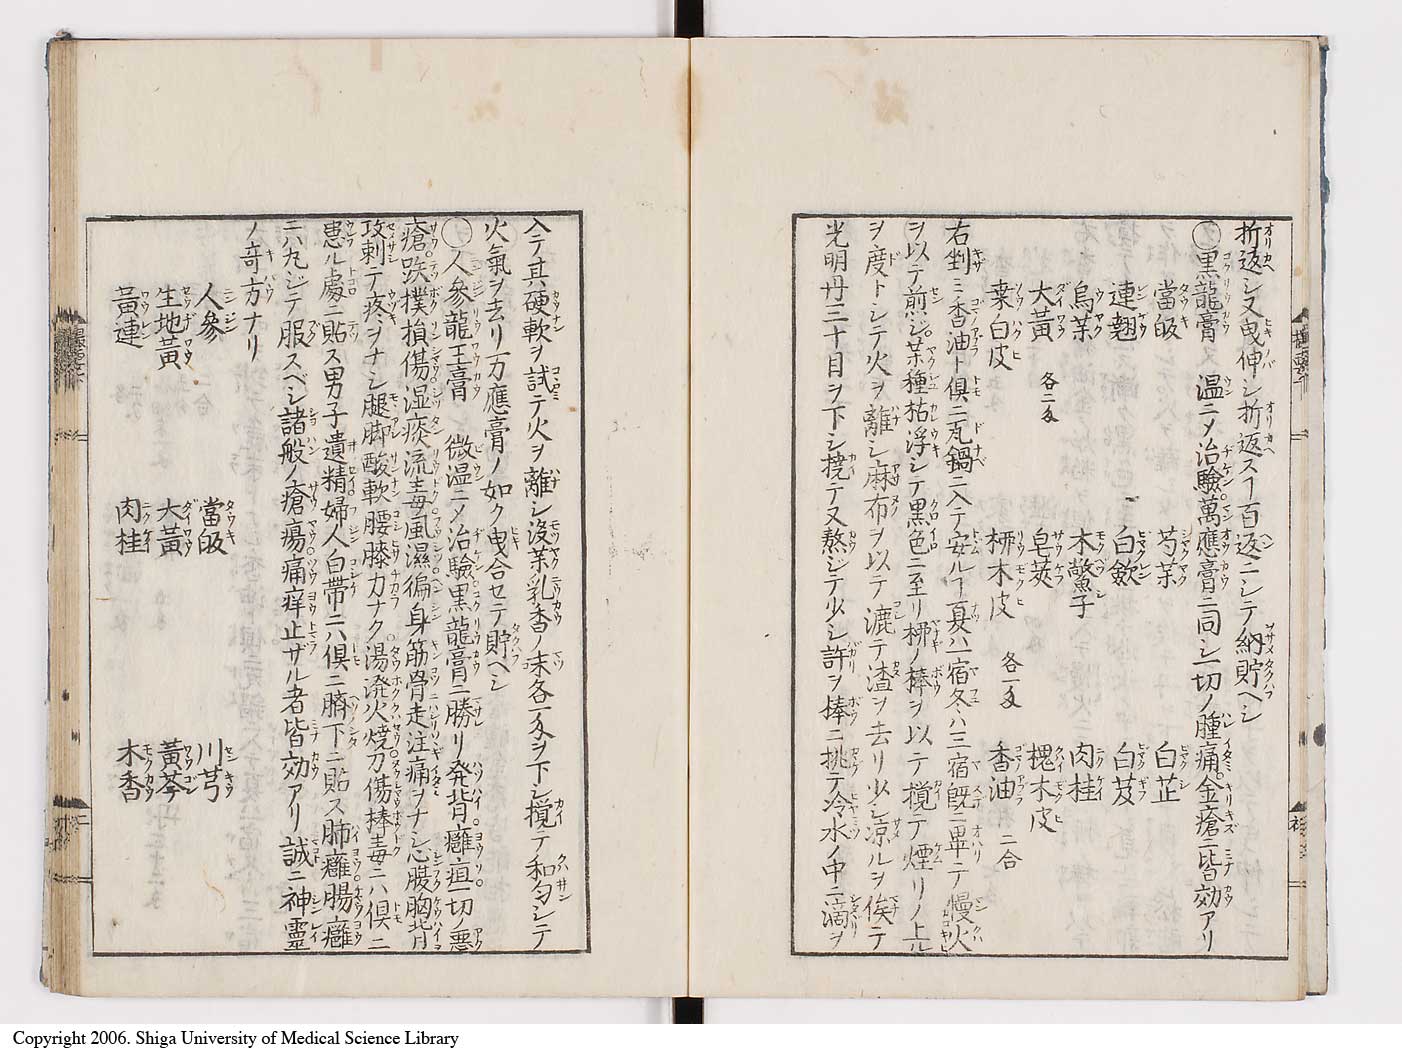 折返シ又曳伸シ折返スヿ百返ニシテ納貯ヘシ
〇黒龍膏 温ニメ治驗萬應膏ニ同シ一切ノ腫痛金瘡ニ皆効アリ
當皈 芍薬 白芷
連翹 白歛 白芨
烏薬 木鱉子 肉桂
大黃 各二匁 皂莢 槐木皮
桒白皮 桺木皮 各一匁 香油 二合
右剉ミ香油ト俱ニ瓦鍋ニ入テ安ルヿ夏ハ一宿冬ハ三宿既ニ畢ニテ慢火
ヲ以テ煎シ薬種枯浮シテ黒色ニ至リ桺ノ棒ヲ以テ攪テ煙リノ上ル
ヲ度トシテ火ヲ離シ麻布ヲ以テ漉テ渣ヲ去リ少シ凉ルヲ俟テ
光明丹三十目ヲ下シ撓テ又熬ジテ少シ許ヲ棒ニ挑テ冷水ノ中ニ滴ヲ
入テ其硬軟ヲ試テ火ヲ離シ没薬乳香ノ末各一匁ヲ下シ攪テ和匀シテ
火氣ヲ去リ万應膏ノ如ク曳合セテ貯ヘシ
〇人參龍王膏 微温ニメ治驗黒龍膏ニ勝リ発背癰疽一切ノ惡
瘡跌撲損傷湿痰流毒風濕徧身筋骨走注痛ヲナシ心腹胸背
攻刺テ疼ヲナシ腿脚酸軟腰膝力ナク湯溌火燒刀傷棒毒ニハ俱ニ
患ル處ニ貼ス男子遺精婦人白帶ニハ俱ニ臍下ニ貼ス肺癰腸癰
ニハ丸ジテ服スベシ諸般ノ瘡瘍痛痒止ザル者皆効アリ誠ニ神靈
ノ竒方ナリ
人參 當皈 川芎
生地黃 大黃 黃芩
黃連 肉桂 木香
Copyright 2006. Shiga University of Medical Science Library